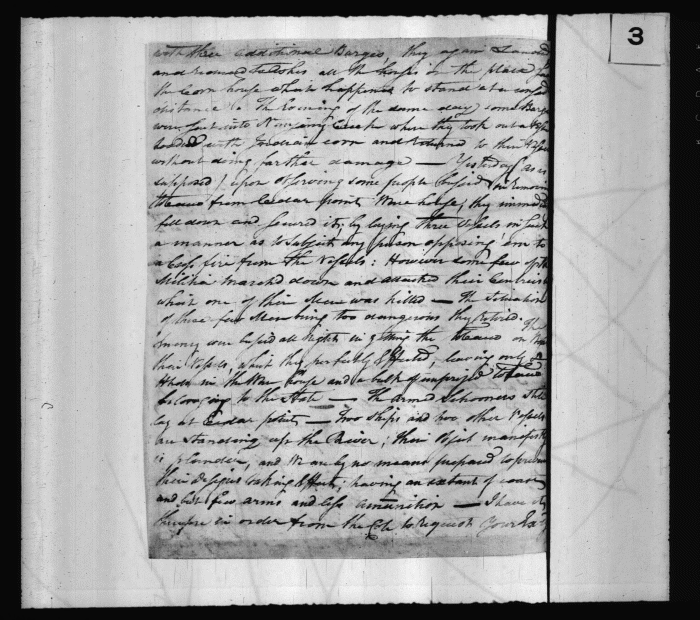 3
with three additional Barges, they again Landed
and demolished all the houses in the place
the Corn house which happened to stand at a
distance. The Evening of the same day some Barges
were sent into Nanjemy Creek where they took out a
loaded with Indian corn and returned to their
without doing farther damage — Yesterday (as is
supposed) upon observing some people busied in removing
Tobacco from Cedar point Ware house, they
fell down and secured it, by laying three Vessels in such
a manner as to subject any person opposing em to
a Cross fire from the Vessels: However some few of the
Militia marched down and attacked their Centries
which one of their Men was killed — The Situation
of these few Men being too dangerous they retired. The
enemy were busied all Night in getting the tobacco on
their Vessels, which they perfectly Effected, leaving only
in the Ware house and a bulk of unprized tobacco
belonging to the State — The armed Schooners Still
lay at Cedar point — Two Ships and two other Vessels
are standing up the River; their Object manifestly
is plunder, and We are by no means prepared to prevent
their designs taking Effect; having an extent of
and but few arms and less amunition — I have
therefore in order from the to request your